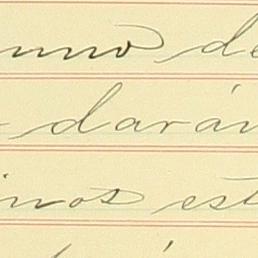 umno de
darán
inos est